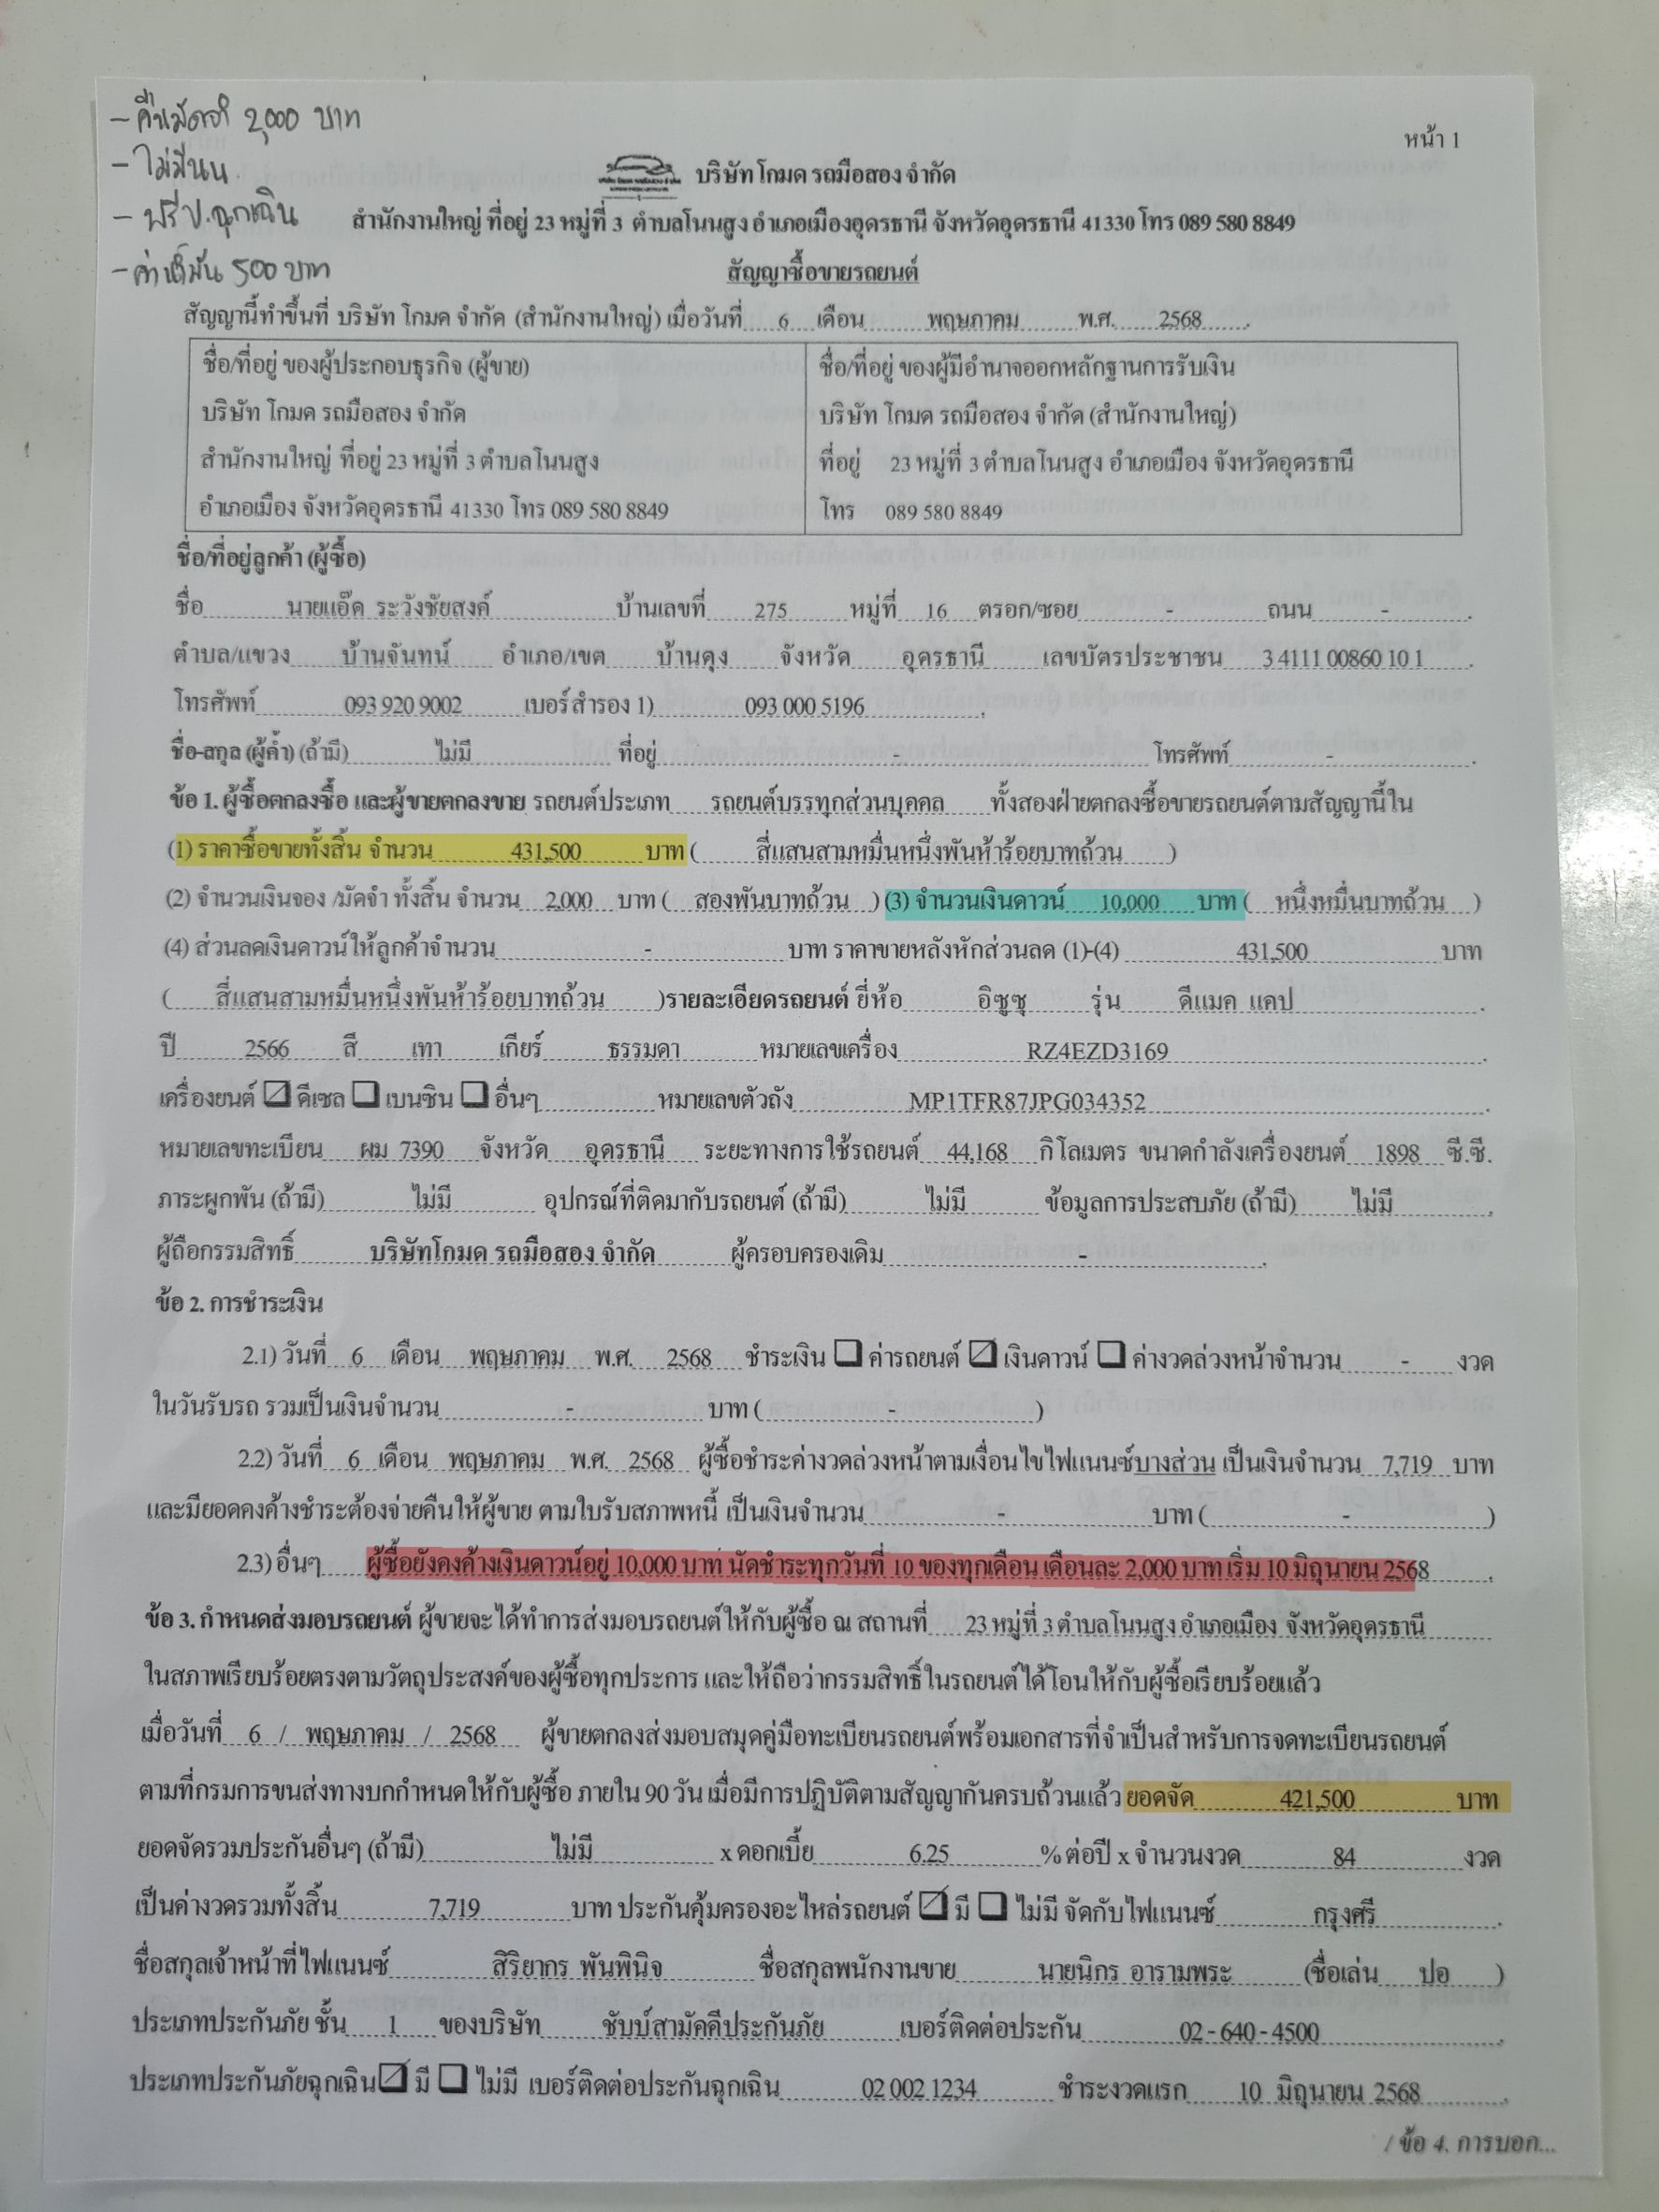 - คืนมัดจำ 2,000 บาท
- ไม่มีนน.
- ฟรีป.ฉุกเฉิน
- ค่าเติมัน 500 บาท
หน้า 1
บริษัท โกมด รถมือสอง จำกัด
สำนักงานใหญ่ ที่อยู่ 23 หมู่ที่ 3 ตำบลโนนสูง อำเภอเมืองอุดรธานี จังหวัดอุดรธานี 41330 โทร 089 580 8849
สัญญาซื้อขายรถยนต์
สัญญานี้ทำขึ้นที่ บริษัท โกมด จำกัด (สำนักงานใหญ่) เมื่อวันที่ 6 เดือน พฤษภาคม พ.ศ. 2568
ชื่อ/ที่อยู่ ของผู้ประกอบธุรกิจ (ผู้ขาย)
บริษัท โกมด รถมือสอง จำกัด
สำนักงานใหญ่ ที่อยู่ 23 หมู่ที่ 3 ตำบลโนนสูง
อำเภอเมือง จังหวัดอุดรธานี 41330 โทร 089 580 8849
ชื่อ/ที่อยู่ ของผู้มีอำนาจออกหลักฐานการรับเงิน
บริษัท โกมด รถมือสอง จำกัด (สำนักงานใหญ่)
ที่อยู่ 23 หมู่ที่ 3 ตำบลโนนสูง อำเภอเมือง จังหวัดอุดรธานี
โทร 089 580 8849
ชื่อ/ที่อยู่ลูกค้า (ผู้ซื้อ)
ชื่อ นายแอ๊ด ระวังชัยสงค์ บ้านเลขที่ 275 หมู่ที่ 16 ตรอก/ซอย - ถนน -
ตำบล/แขวง บ้านจันทน์ อำเภอ/เขต บ้านดุง จังหวัด อุดรธานี เลขบัตรประชาชน 3 4111 00860 10 1
โทรศัพท์ 093 920 9002 เบอร์สำรอง 1) 093 000 5196
ชื่อ-สกุล (ผู้ค้ำ) (ถ้ามี) ไม่มี ที่อยู่ - โทรศัพท์ -
ข้อ 1. ผู้ซื้อตกลงซื้อ และผู้ขายตกลงขาย รถยนต์ประเภท รถยนต์บรรทุกส่วนบุคคล ทั้งสองฝ่ายตกลงซื้อขายรถยนต์ตามสัญญานี้ใน
(1) ราคาซื้อขายทั้งสิ้น จำนวน 431,500 บาท ( สี่แสนสามหมื่นหนึ่งพันห้าร้อยบาทถ้วน )
(2) จำนวนเงินจอง /มัดจำ ทั้งสิ้น จำนวน 2,000 บาท ( สองพันบาทถ้วน ) (3) จำนวนเงินดาวน์ 10,000 บาท ( หนึ่งหมื่นบาทถ้วน )
(4) ส่วนลดเงินดาวน์ให้ลูกค้าจำนวน - บาท ราคาขายหลังหักส่วนลด (1)-(4) 431,500 บาท
( สี่แสนสามหมื่นหนึ่งพันห้าร้อยบาทถ้วน )รายละเอียดรถยนต์ ยี่ห้อ อิซูซุ รุ่น ดีแมค แคป
ปี 2566 สี เทา เกียร์ ธรรมดา หมายเลขเครื่อง RZ4EZD3169
เครื่องยนต์ ☑ ดีเซล ☐ เบนซิน ☐ อื่นๆ หมายเลขตัวถัง MP1TFR87JPG034352
หมายเลขทะเบียน ผม 7390 จังหวัด อุดรธานี ระยะทางการใช้รถยนต์ 44,168 กิโลเมตร ขนาดกำลังเครื่องยนต์ 1898 ซี.ซี.
ภาระผูกพัน (ถ้ามี) ไม่มี อุปกรณ์ที่ติดมากับรถยนต์ (ถ้ามี) ไม่มี ข้อมูลการประสบภัย (ถ้ามี) ไม่มี
ผู้ถือกรรมสิทธิ์ บริษัทโกมด รถมือสอง จำกัด ผู้ครอบครองเดิม -
ข้อ 2. การชำระเงิน
2.1) วันที่ 6 เดือน พฤษภาคม พ.ศ. 2568 ชำระเงิน ☐ ค่ารถยนต์ ☑ เงินดาวน์ ☐ ค่างวดล่วงหน้าจำนวน - งวด
ในวันรับรถ รวมเป็นเงินจำนวน - บาท ( - )
2.2) วันที่ 6 เดือน พฤษภาคม พ.ศ. 2568 ผู้ซื้อชำระค่างวดล่วงหน้าตามเงื่อนไขไฟแนนซ์บางส่วน เป็นเงินจำนวน 7,719 บาท
และมียอดคงค้างชำระต้องจ่ายคืนให้ผู้ขาย ตามใบรับสภาพหนี้ เป็นเงินจำนวน - บาท ( - )
2.3) อื่นๆ ผู้ซื้อยังคงค้างเงินดาวน์อยู่ 10,000 บาท นัดชำระทุกวันที่ 10 ของทุกเดือน เดือนละ 2,000 บาท เริ่ม 10 มิถุนายน 2568
ข้อ 3. กำหนดส่งมอบรถยนต์ ผู้ขายจะได้ทำการส่งมอบรถยนต์ให้กับผู้ซื้อ ณ สถานที่ 23 หมู่ที่ 3 ตำบลโนนสูง อำเภอเมือง จังหวัดอุดรธานี
ในสภาพเรียบร้อยตรงตามวัตถุประสงค์ของผู้ซื้อทุกประการ และให้ถือว่ากรรมสิทธิ์ในรถยนต์ได้โอนให้กับผู้ซื้อเรียบร้อยแล้ว
เมื่อวันที่ 6 / พฤษภาคม / 2568 ผู้ขายตกลงส่งมอบสมุดคู่มือทะเบียนรถยนต์พร้อมเอกสารที่จำเป็นสำหรับการจดทะเบียนรถยนต์
ตามที่กรมการขนส่งทางบกกำหนดให้กับผู้ซื้อ ภายใน 90 วัน เมื่อมีการปฏิบัติตามสัญญากันครบถ้วนแล้ว ยอดจัด 421,500 บาท
ยอดจัดรวมประกันอื่นๆ (ถ้ามี) ไม่มี x ดอกเบี้ย 6.25 % ต่อปี x จำนวนงวด 84 งวด
เป็นค่างวดรวมทั้งสิ้น 7,719 บาท ประกันคุ้มครองอะไหล่รถยนต์ ☑ มี ☐ ไม่มี จัดกับไฟแนนซ์ กรุงศรี
ชื่อสกุลเจ้าหน้าที่ไฟแนนซ์ สิริยากร พันพินิจ ชื่อสกุลพนักงานขาย นายนิกร อารามพระ (ชื่อเล่น ปอ )
ประเภทประกันภัย ชั้น 1 ของบริษัท ชับบ์สามัคคีประกันภัย เบอร์ติดต่อประกัน 02 - 640 - 4500
ประเภทประกันภัยฉุกเฉิน ☑ มี ☐ ไม่มี เบอร์ติดต่อประกันฉุกเฉิน 02 002 1234 ชำระงวดแรก 10 มิถุนายน 2568
/ ข้อ 4. การบอก...